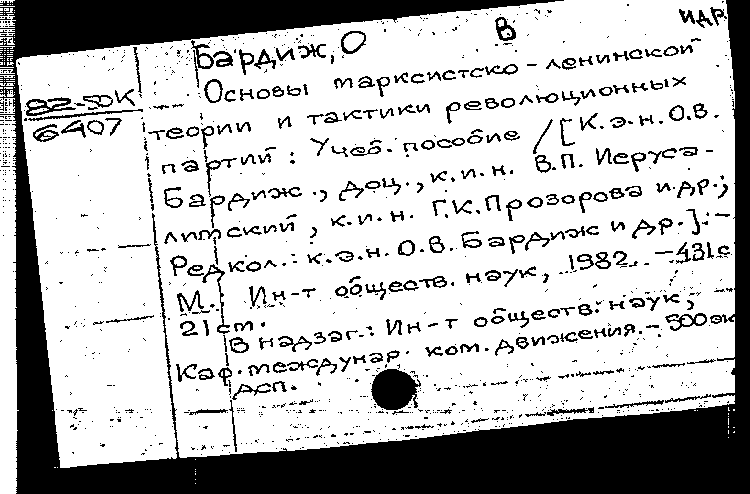 Бардиж, О В и др
82-50К
6407
Основы марксистско-ленинской
теории и тактики революционных
партий: Учеб. пособие / [К.э.н. О.В.
Бардиж., доц., к.и.н. В.П. Иеруса-
лимский, к.и.н. Г.К. Прозорова и др.;
Редкол.: к.э.н. О.В. Бардиж и др.]. -
М.: Ин-т обществ. наук, 1982. - 431с
21 см.
В надзаг.: Ин-т обществ. наук,
Каф. междунар. ком. движения. - 500 эк
ДСП.